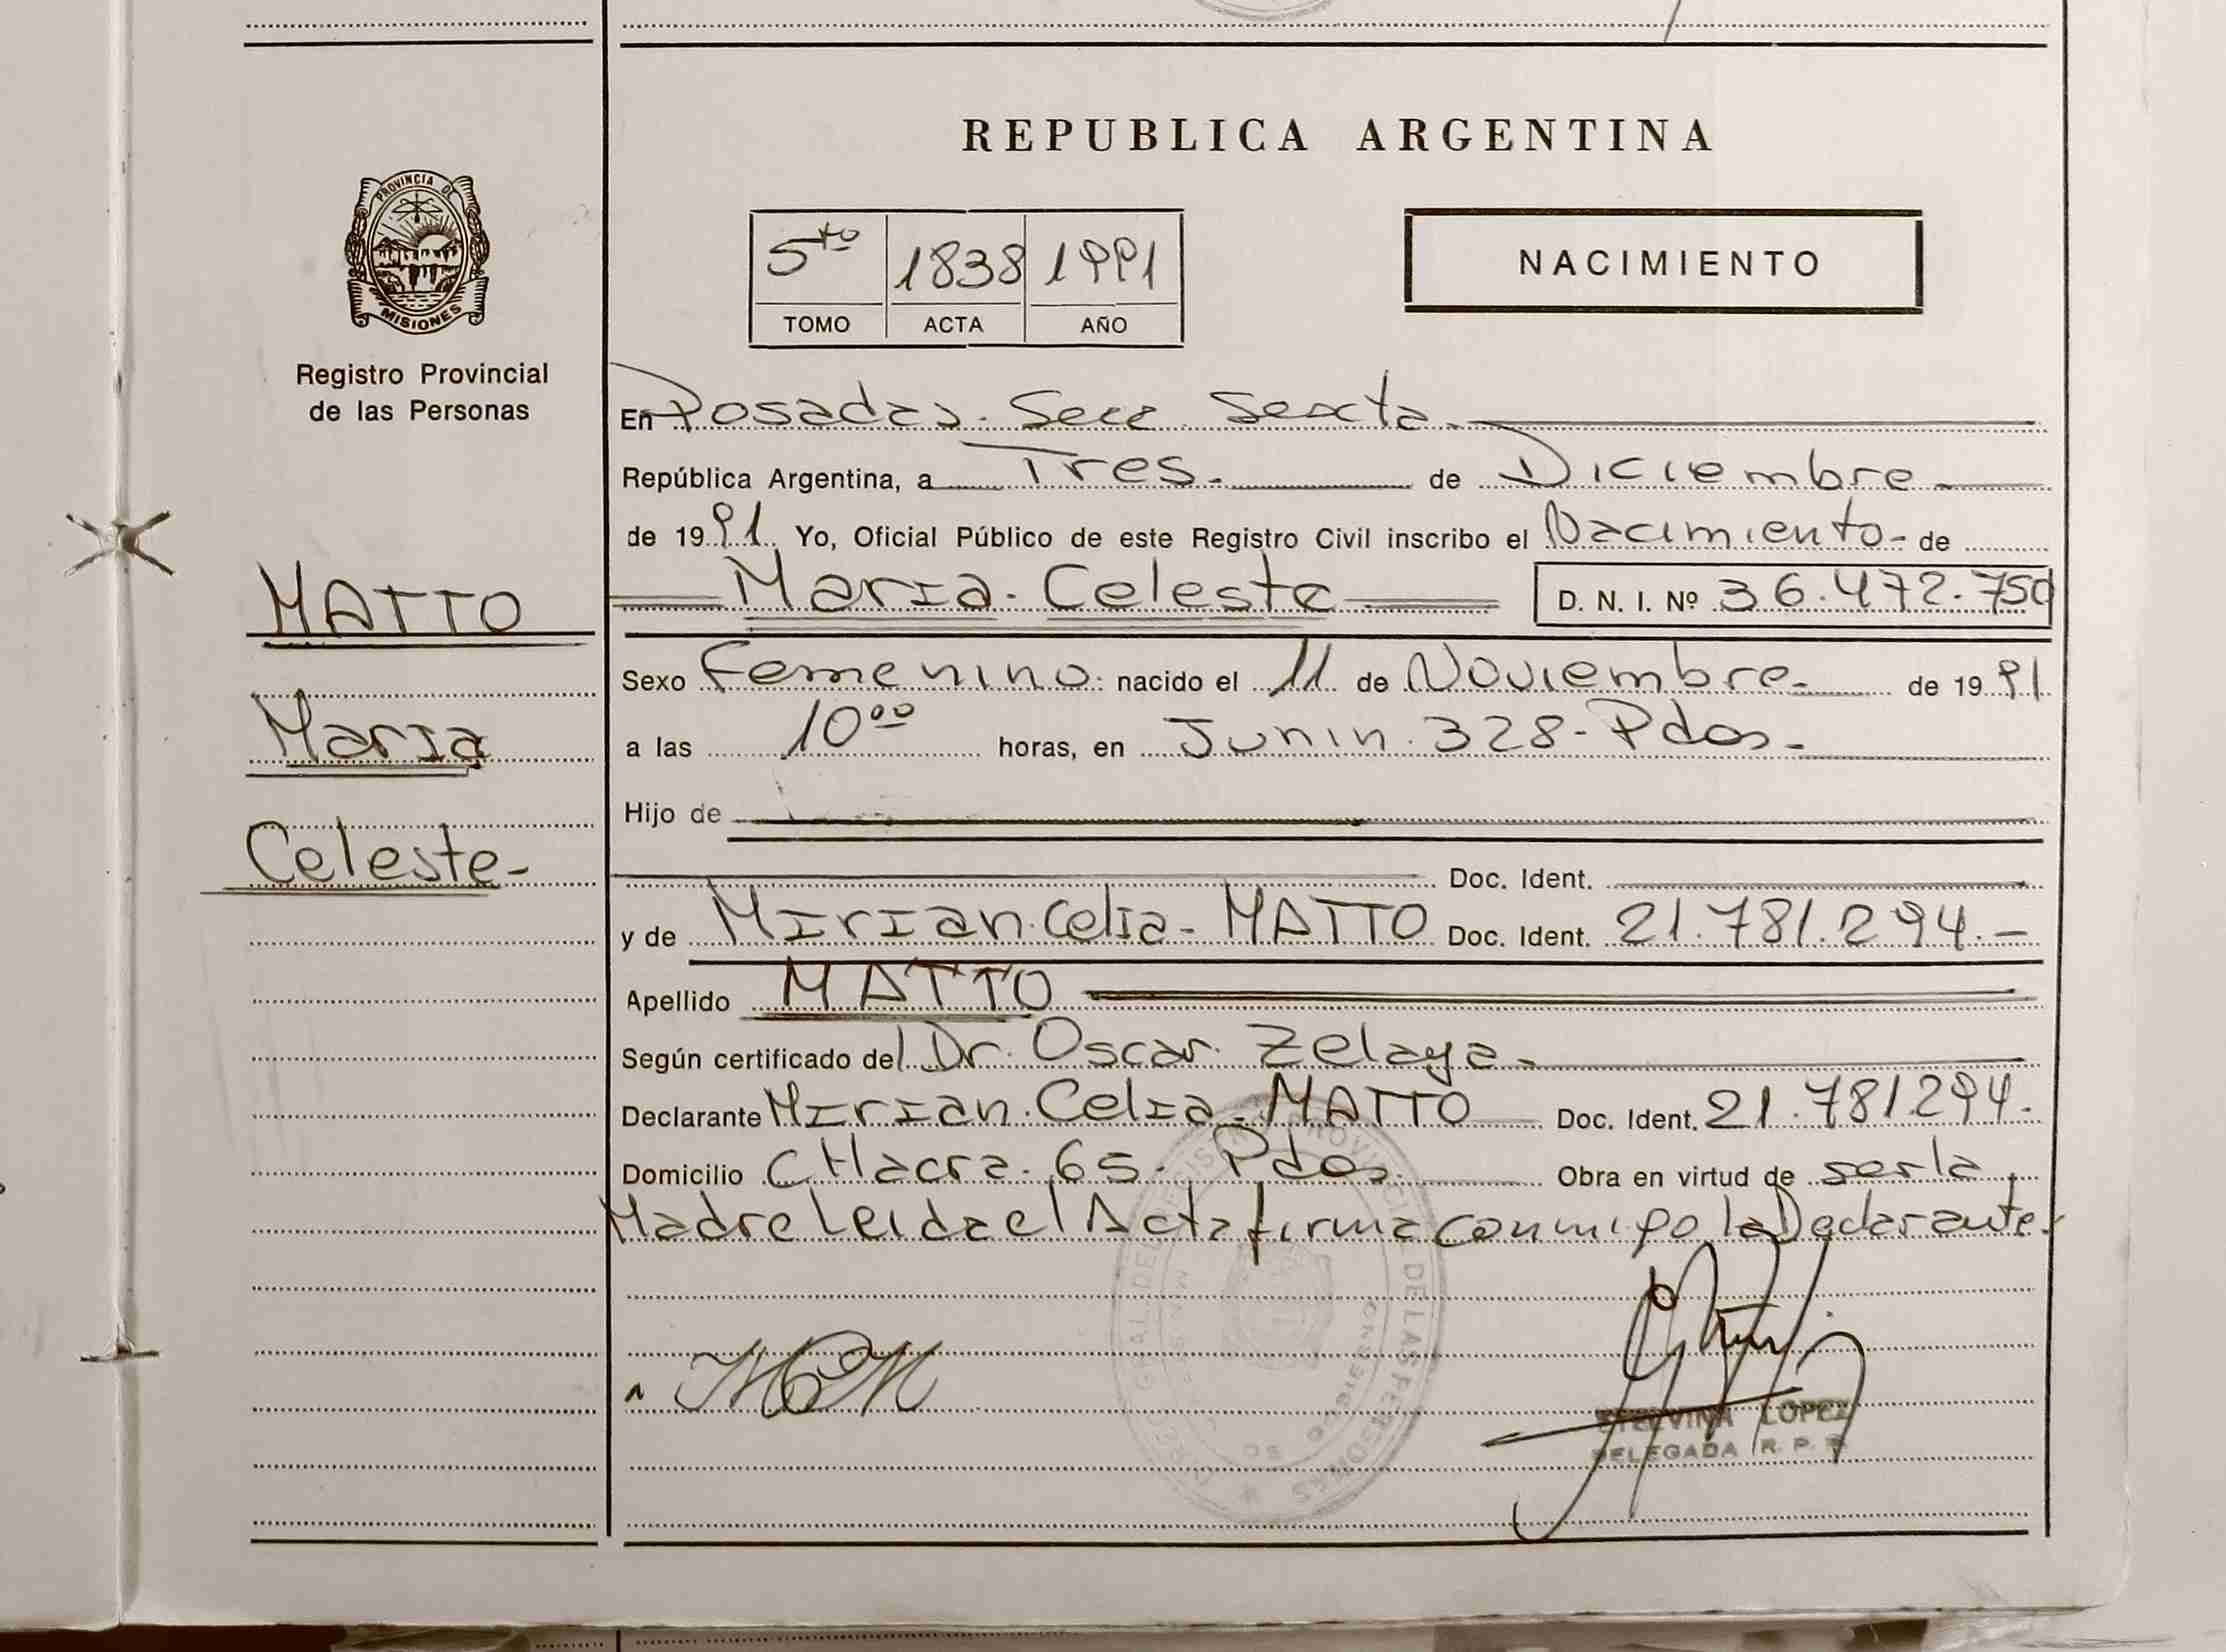 REPUBLICA ARGENTINA
PROVINCIA DE
MISIONES
Registro Provincial
de las Personas
5to 1838 1991
TOMO ACTA AÑO
NACIMIENTO
En Posadas. Secc Sexta.
República Argentina, a Tres. de Diciembre
de 1991 Yo, Oficial Público de este Registro Civil inscribo el Nacimiento - de
MATTO
Maria
Celeste-
Maria. Celeste D. N. I. Nº 36.472.750
Sexo Femenino. nacido el 11 de Noviembre. de 1991
a las 10⁰⁰ horas, en Junin. 328- Pdas.
Hijo de
Doc. Ident.
y de Mirian. Celia- MATTO Doc. Ident. 21.781.294.-
Apellido MATTO
Según certificado del Dr. Oscar. Zelaya.
Declarante Mirian. Celia. MATTO Doc. Ident. 21.781294.
Domicilio CHacra. 65. Pdas. Obra en virtud de ser la
Madre Leida el Acta firma conmigo la Declarante.
ETELVINA LOPEZ
DELEGADA R. P. P.